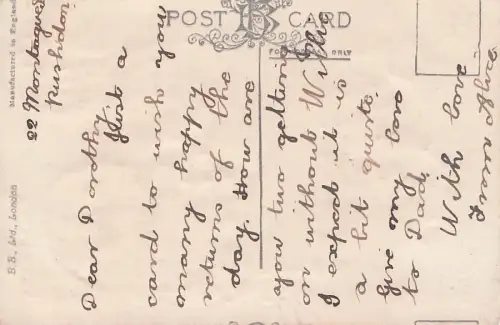 POST CARD
FOR ADDRESS ONLY
Manufactured in England
B.B., Ltd., London
22 Montague
Rushden
Dear Dorothy
Just a
card to wish
happy
returns of the
day. How are
you two getting
on without
I expect it is
a bit quiet.
Give my love
to Dad.
With love
from